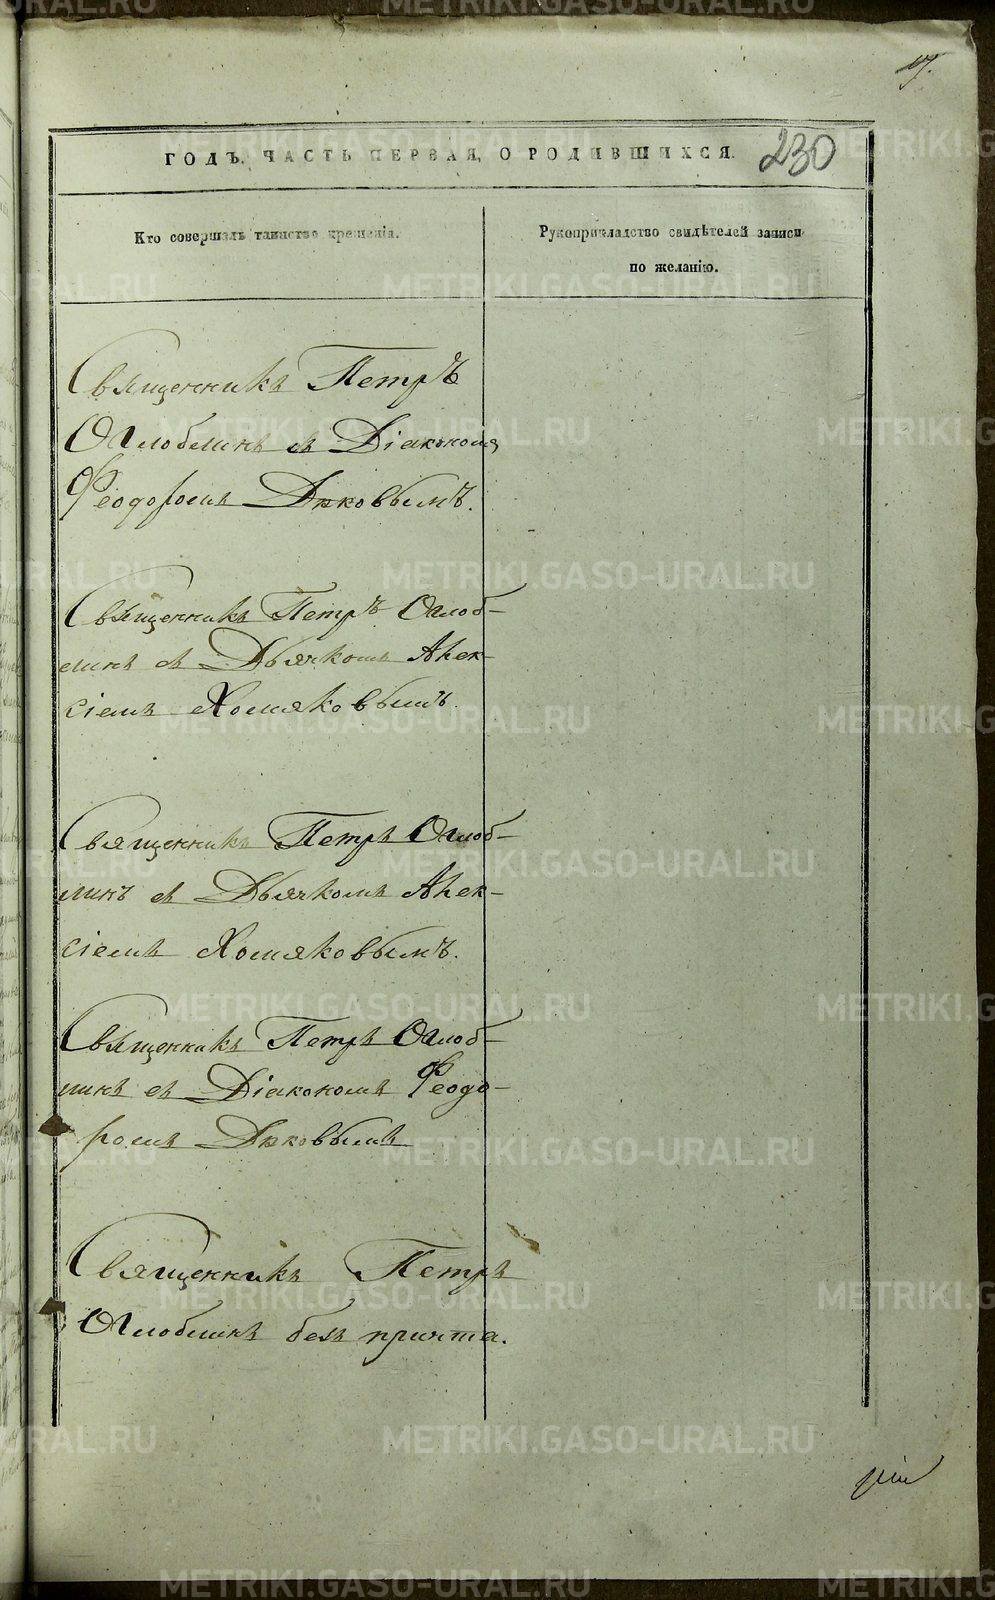 17.
ГОДЪ. ЧАСТЬ ПЕРВАЯ, О РОДИВШИХСЯ.
230
Кто совершалъ таинство крещенія.
Рукоприкладство свидѣтелей записи
по желанію.
Священникъ Петръ
Оглоблинъ съ Діакономъ
Феодоромъ Дѣковымъ.
Священникъ Петръ Оглоб-
линъ съ Дьячкомъ Алек-
сіемъ Хомяковымъ.
Священникъ Петръ Оглоб-
линъ съ Дьячкомъ Алек-
сіемъ Хомяковымъ.
Священникъ Петръ Оглоб-
линъ съ Діакономъ Феодо-
ромъ Дѣковымъ
Священникъ Петръ
Оглоблинъ безъ причта.
METRIKI.GASO-URAL.RU